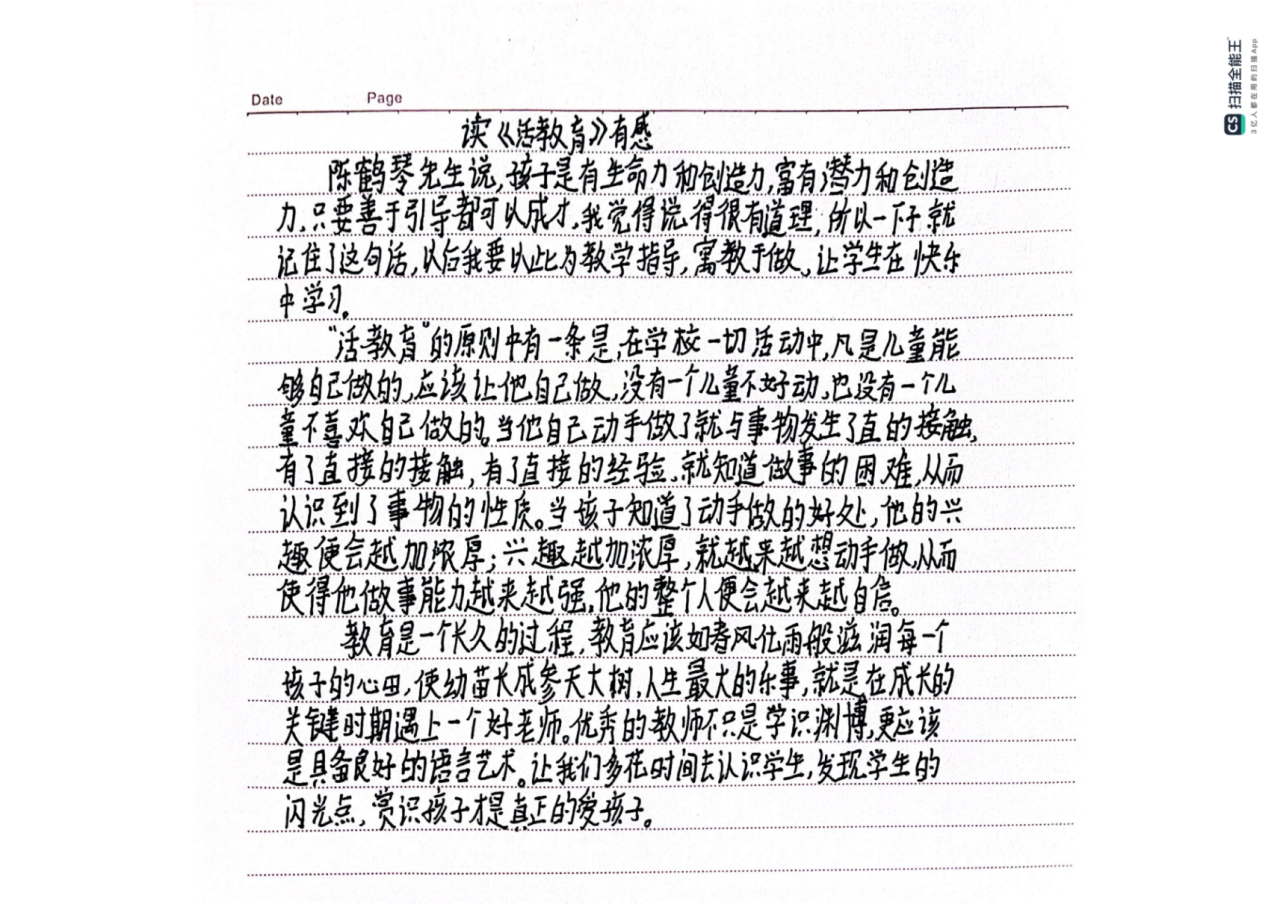 Date Page
读《活教育》有感
陈鹤琴先生说,孩子是有生命力和创造力,富有潜力和创造
力,只要善于引导都可以成才,我觉得说得很有道理,所以一下子就
记住了这句话,以后我要以此为教学指导,寓教于做,让学生在快乐
中学习。
“活教育”的原则中有一条是,在学校一切活动中,凡是儿童能
够自己做的,应该让他自己做,没有一个儿童不好动,也没有一个儿
童不喜欢自己做的。当他自己动手做了就与事物发生了直的接触,
有了直接的接触,有了直接的经验,就知道做事的困难,从而
认识到了事物的性质。当孩子知道了动手做的好处,他的兴
趣便会越加浓厚;兴趣越加浓厚,就越来越想动手做,从而
使得他做事能力越来越强,他的整个人便会越来越自信。
教育是一个长久的过程,教育应该如春风化雨般滋润每一个
孩子的心田,使幼苗长成参天大树,人生最大的乐事,就是在成长的
关键时期遇上一个好老师。优秀的教师不只是学识渊博,更应该
是具备良好的语言艺术。让我们多花时间去认识学生,发现学生的
闪光点,赏识孩子才是真正的爱孩子。
CS 扫描全能王
3亿人都在用的扫描App